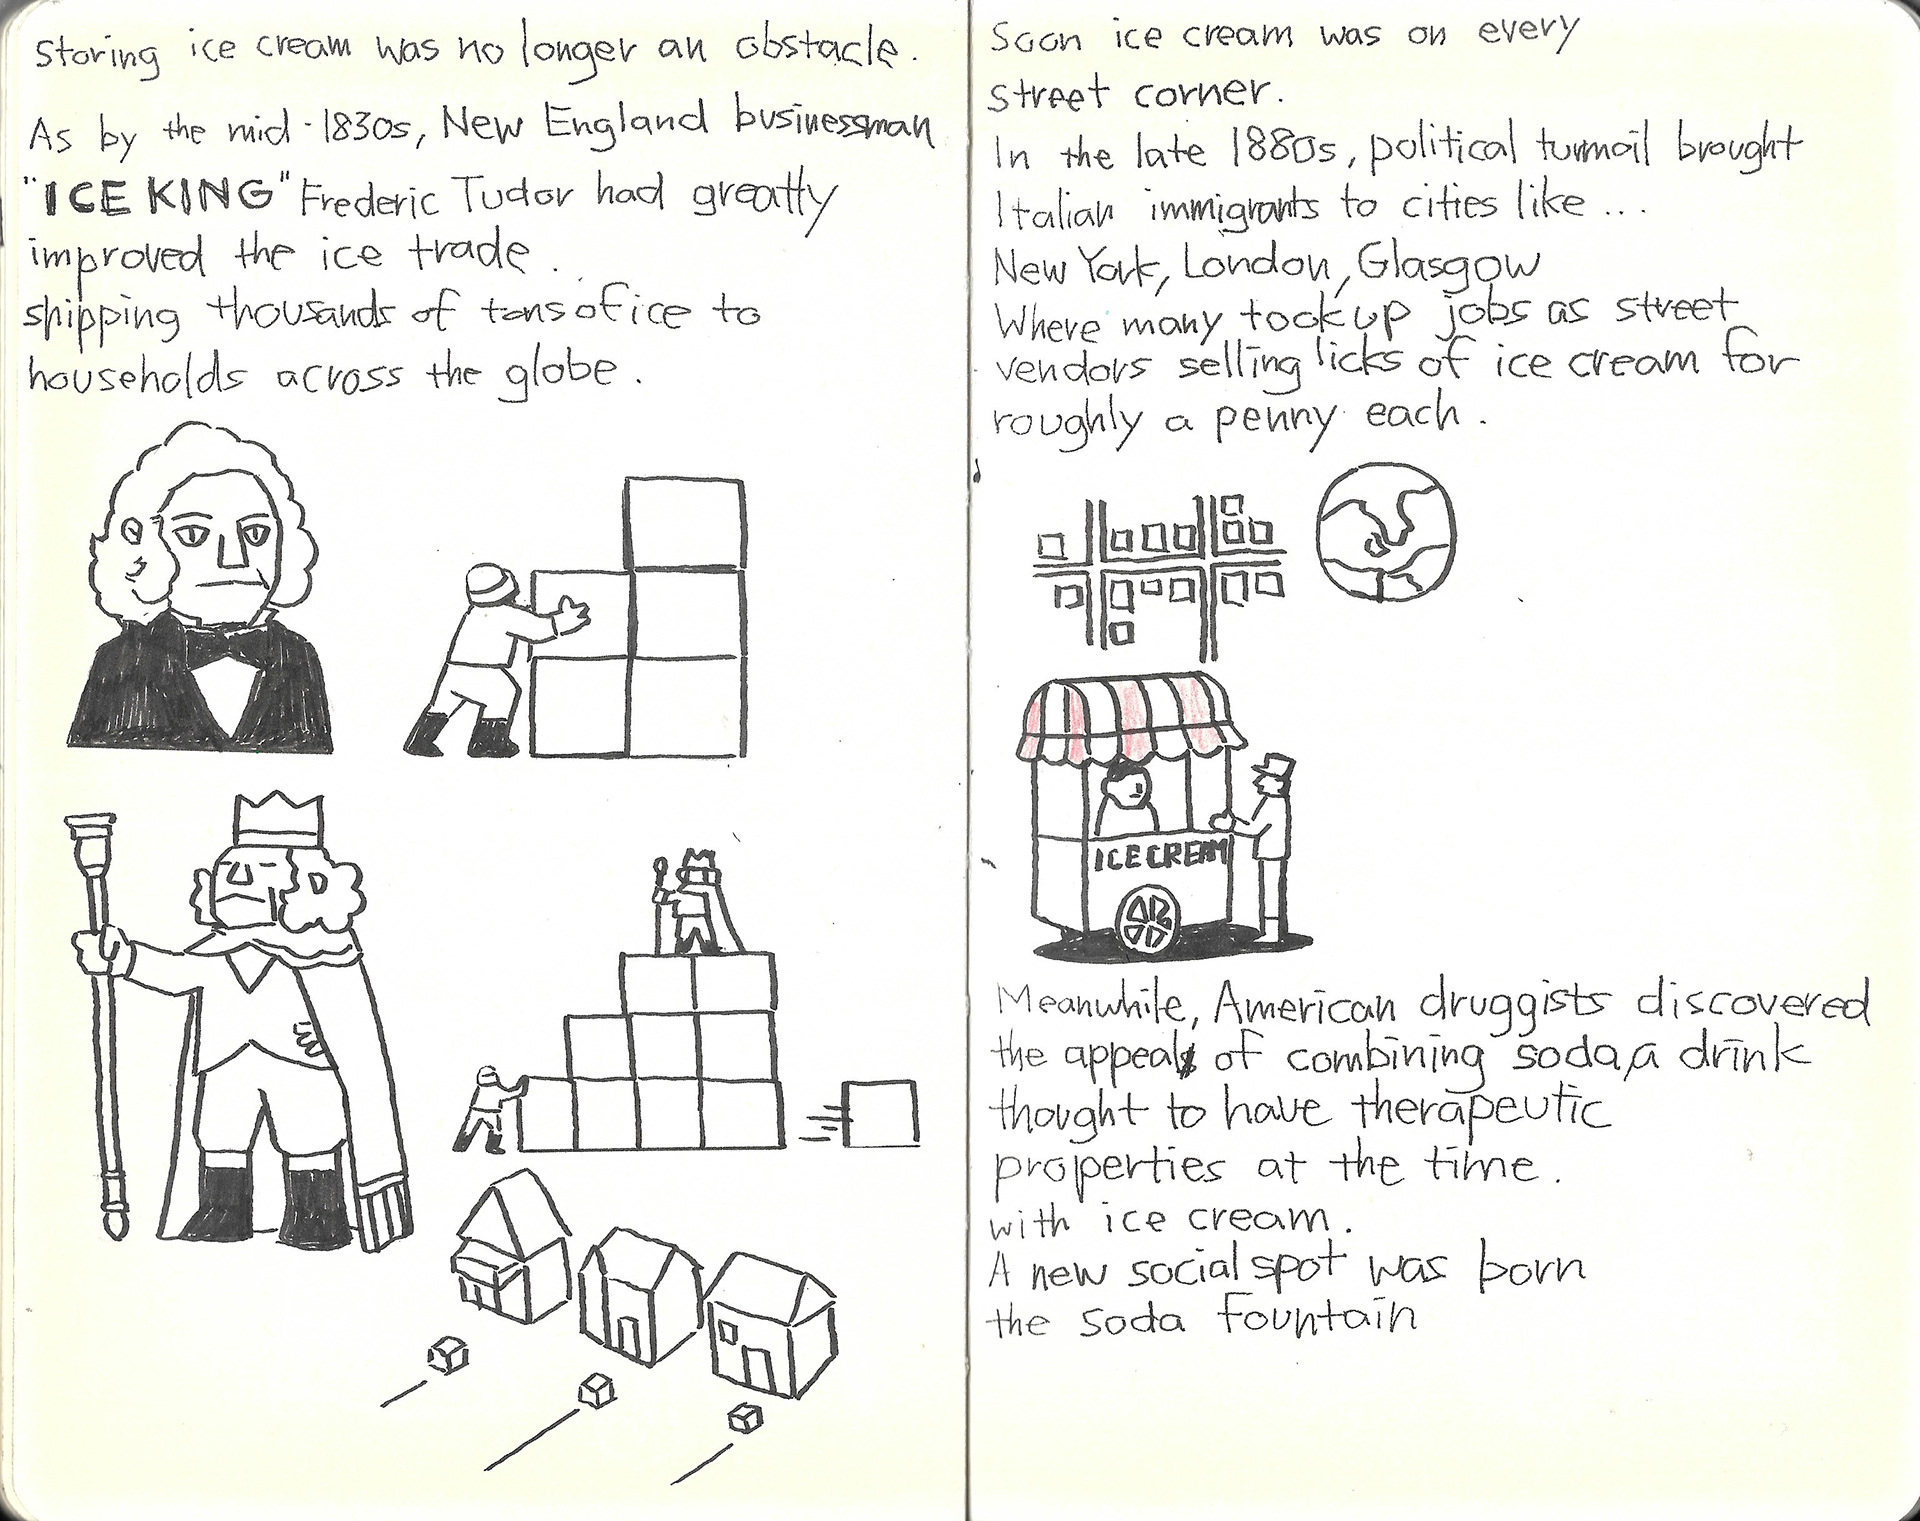 Storing ice cream was no longer an obstacle.
As by the mid-1830s, New England businessman
"ICE KING" Frederic Tudor had greatly
improved the ice trade.
shipping thousands of tons of ice to
households across the globe.
Soon ice cream was on every
street corner.
In the late 1880s, political turmoil brought
Italian immigrants to cities like ...
New York, London, Glasgow
Where many took up jobs as street
vendors selling licks of ice cream for
roughly a penny each.
ICE CREAM
Meanwhile, American druggists discovered
the appeal of combining soda, a drink
thought to have therapeutic
properties at the time.
with ice cream.
A new social spot was born
the soda fountain